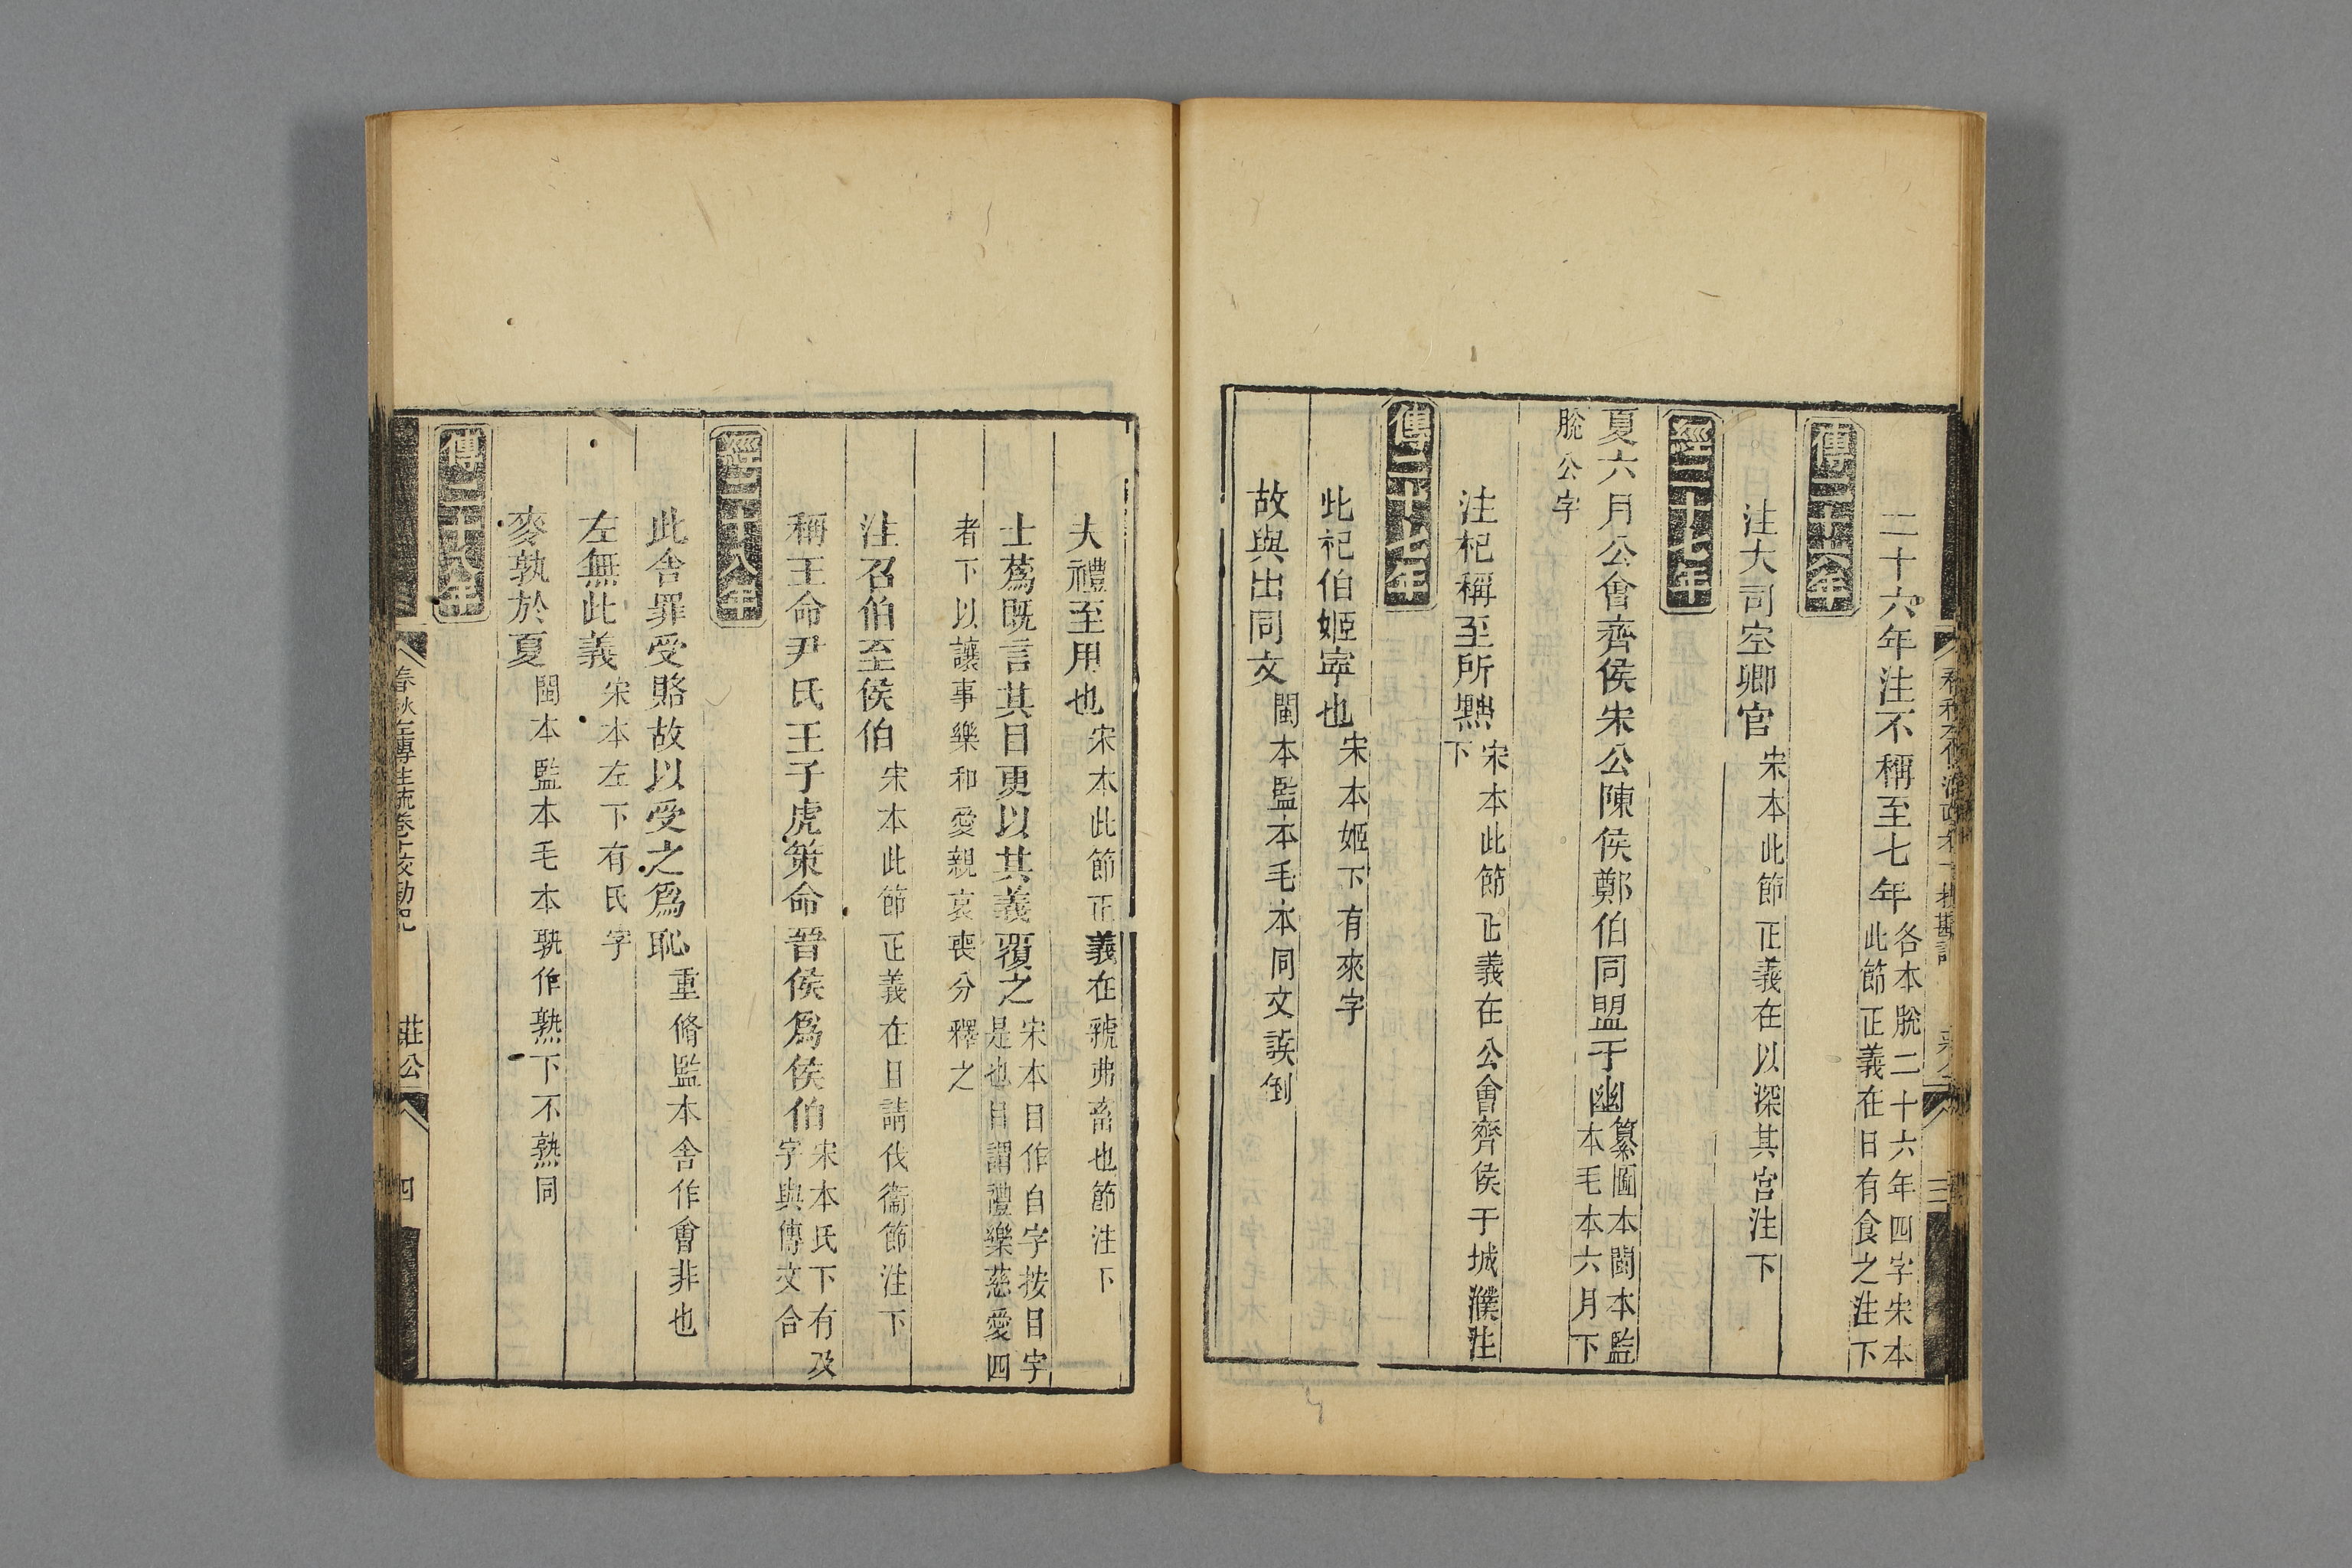 二十六年注不稱至七年各本脫二十六年四字宋本此節正義在日有食之注下
傳二十六年
注大司空卿官宋本此節正義在以深其宮注下
經二十七年
夏六月公會齊侯宋公陳侯鄭伯同盟于幽纂圖本閩本監本毛本六月下
脫公字
注杞稱至所黜宋本此節正義在公會齊侯于城濮注下
傳二十七年
此杞伯姬寧也宋本姬下有來字
故與出同文閩本監本毛本同文誤倒
夫禮至用也宋本此節正義在虢弗畜也節注下
士蒍既言其目更以其義覆之宋本目作自字按目字是也目謂禮樂慈愛四
者下以讓事樂和愛親哀喪分釋之
注召伯至侯伯宋本此節正義在且請伐衞節注下
稱王命尹氏王子虎策命晉侯爲侯伯宋本氏下有及字與傳文合
經二十八年
此舍罪受賂故以受之爲恥重脩監本舍作會非也
左無此義宋本左下有氏字
麥孰於夏閩本監本毛本孰作熟下不熟同
傳二十八年
春秋左傳注疏卷十校勘記 莊公 四